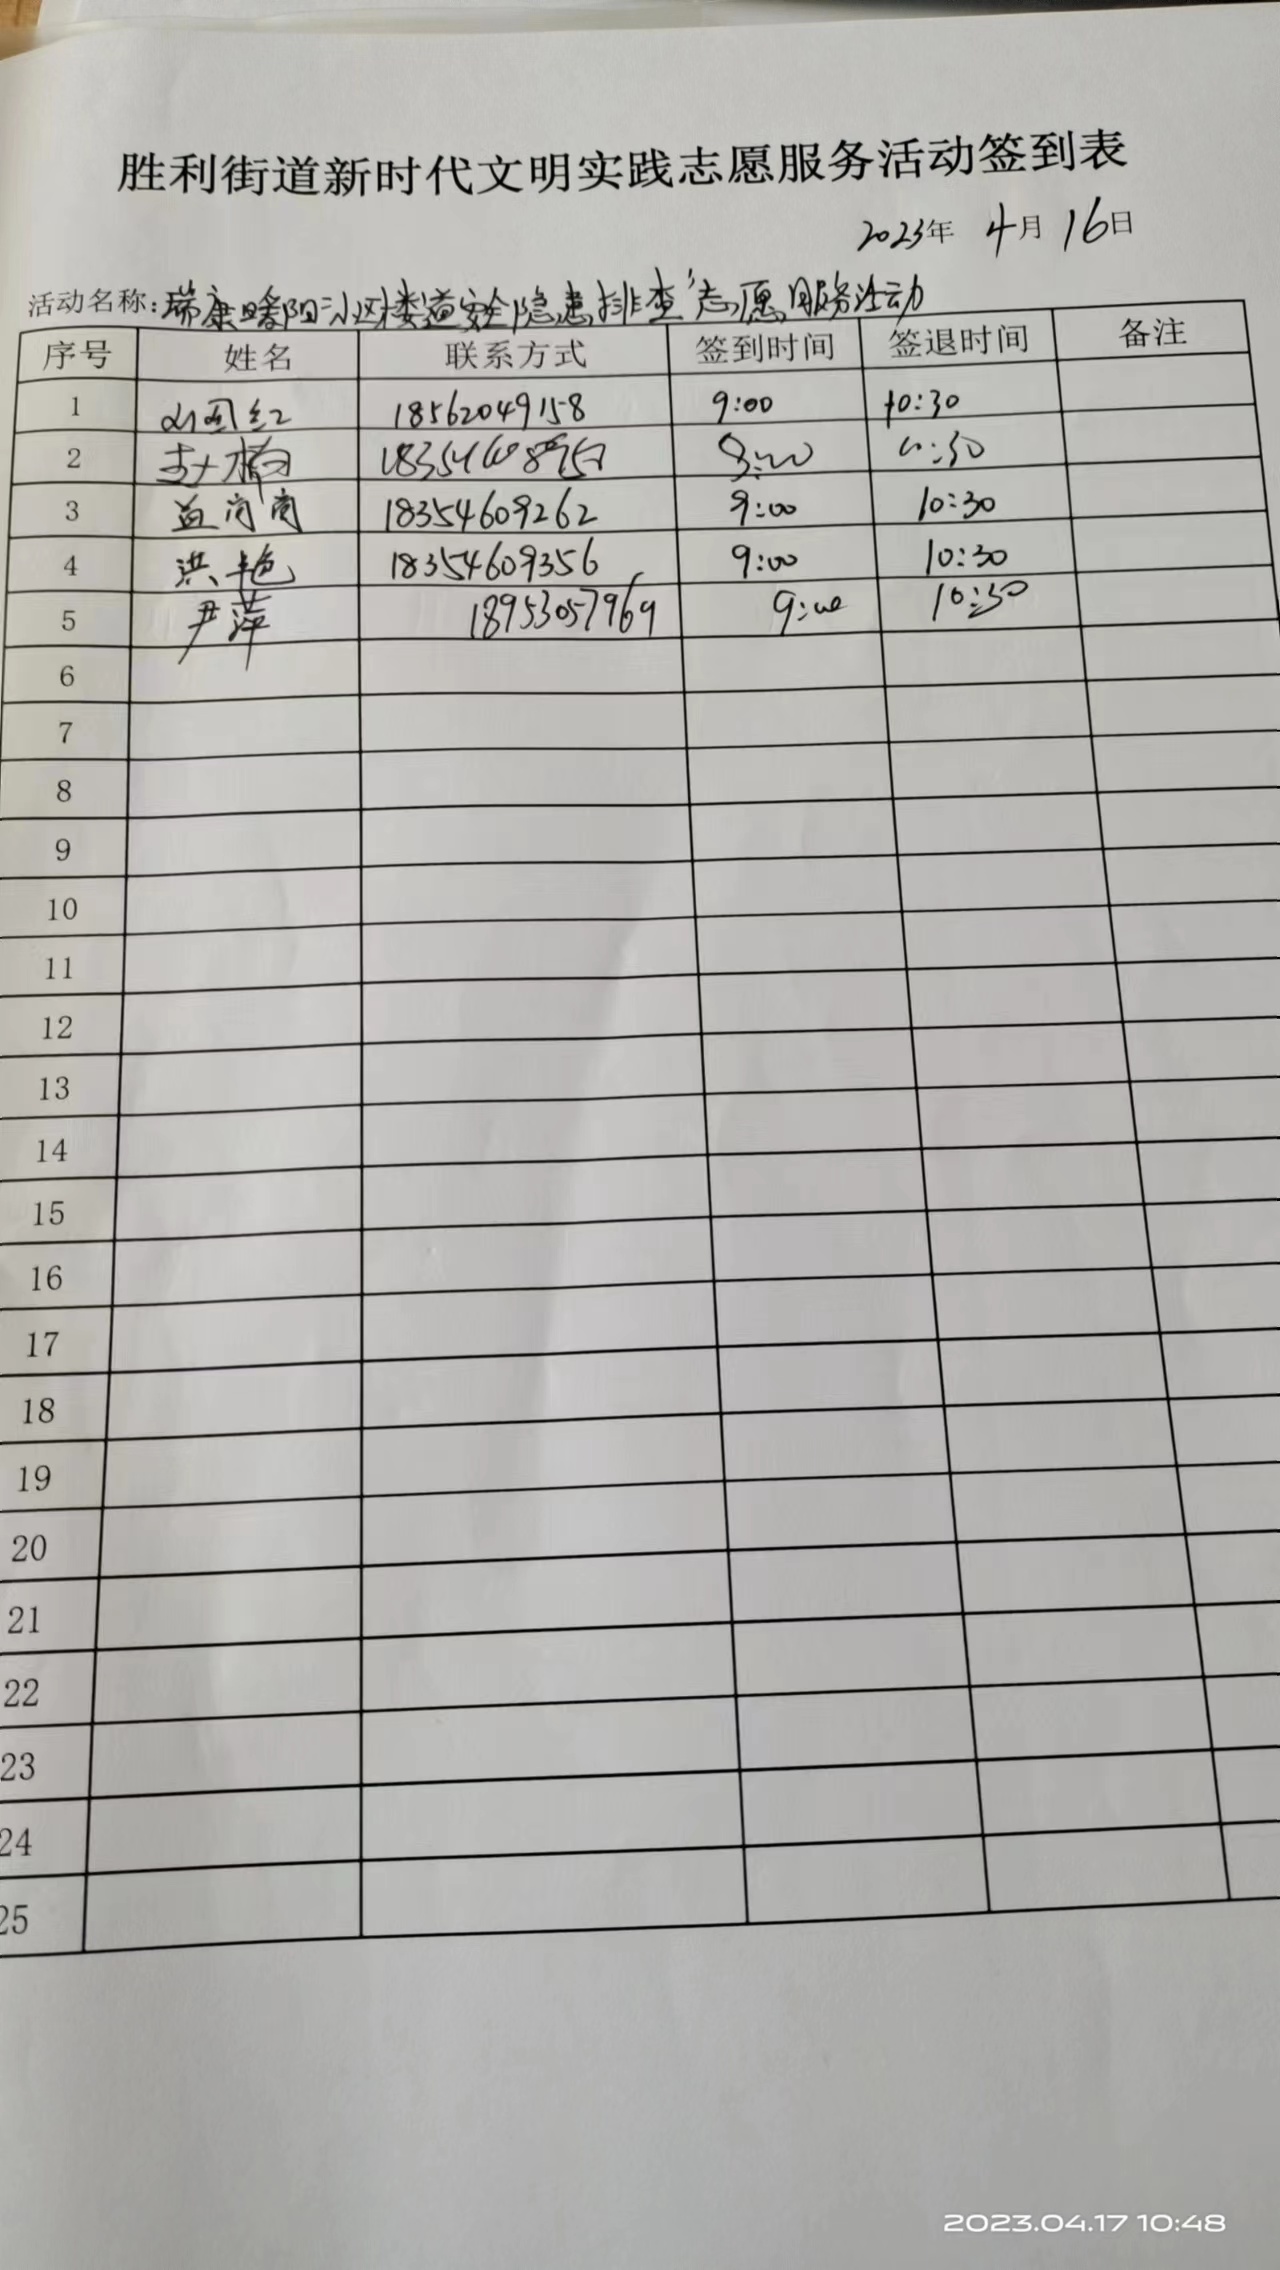 胜利街道新时代文明实践志愿服务活动签到表
2023年 4月 16日
活动名称:瑞康暖阳小区楼道安全隐患排查"志愿服务活动
序号 姓名 联系方式 签到时间 签退时间 备注
1 18562049158 9:00 10:30
2 9:00 10:30
3 18354609262 9:00 10:30
4 洪艳 18354609356 9:00 10:30
5 尹萍 18953057969 9:00 10:30
6
7
8
9
10
11
12
13
14
15
16
17
18
19
20
21
22
23
24
25
2023.04.17 10:48